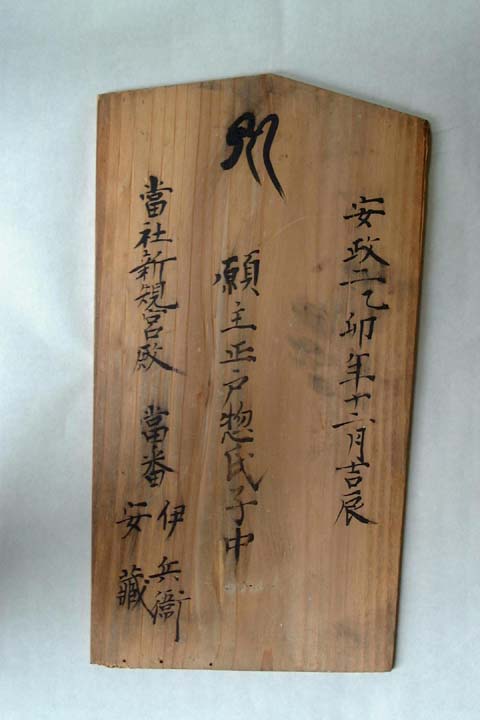 安政二乙卯年十二月吉辰
願主正戸惣氏子中
當社新規宮殿 當番
伊兵衞
安藏